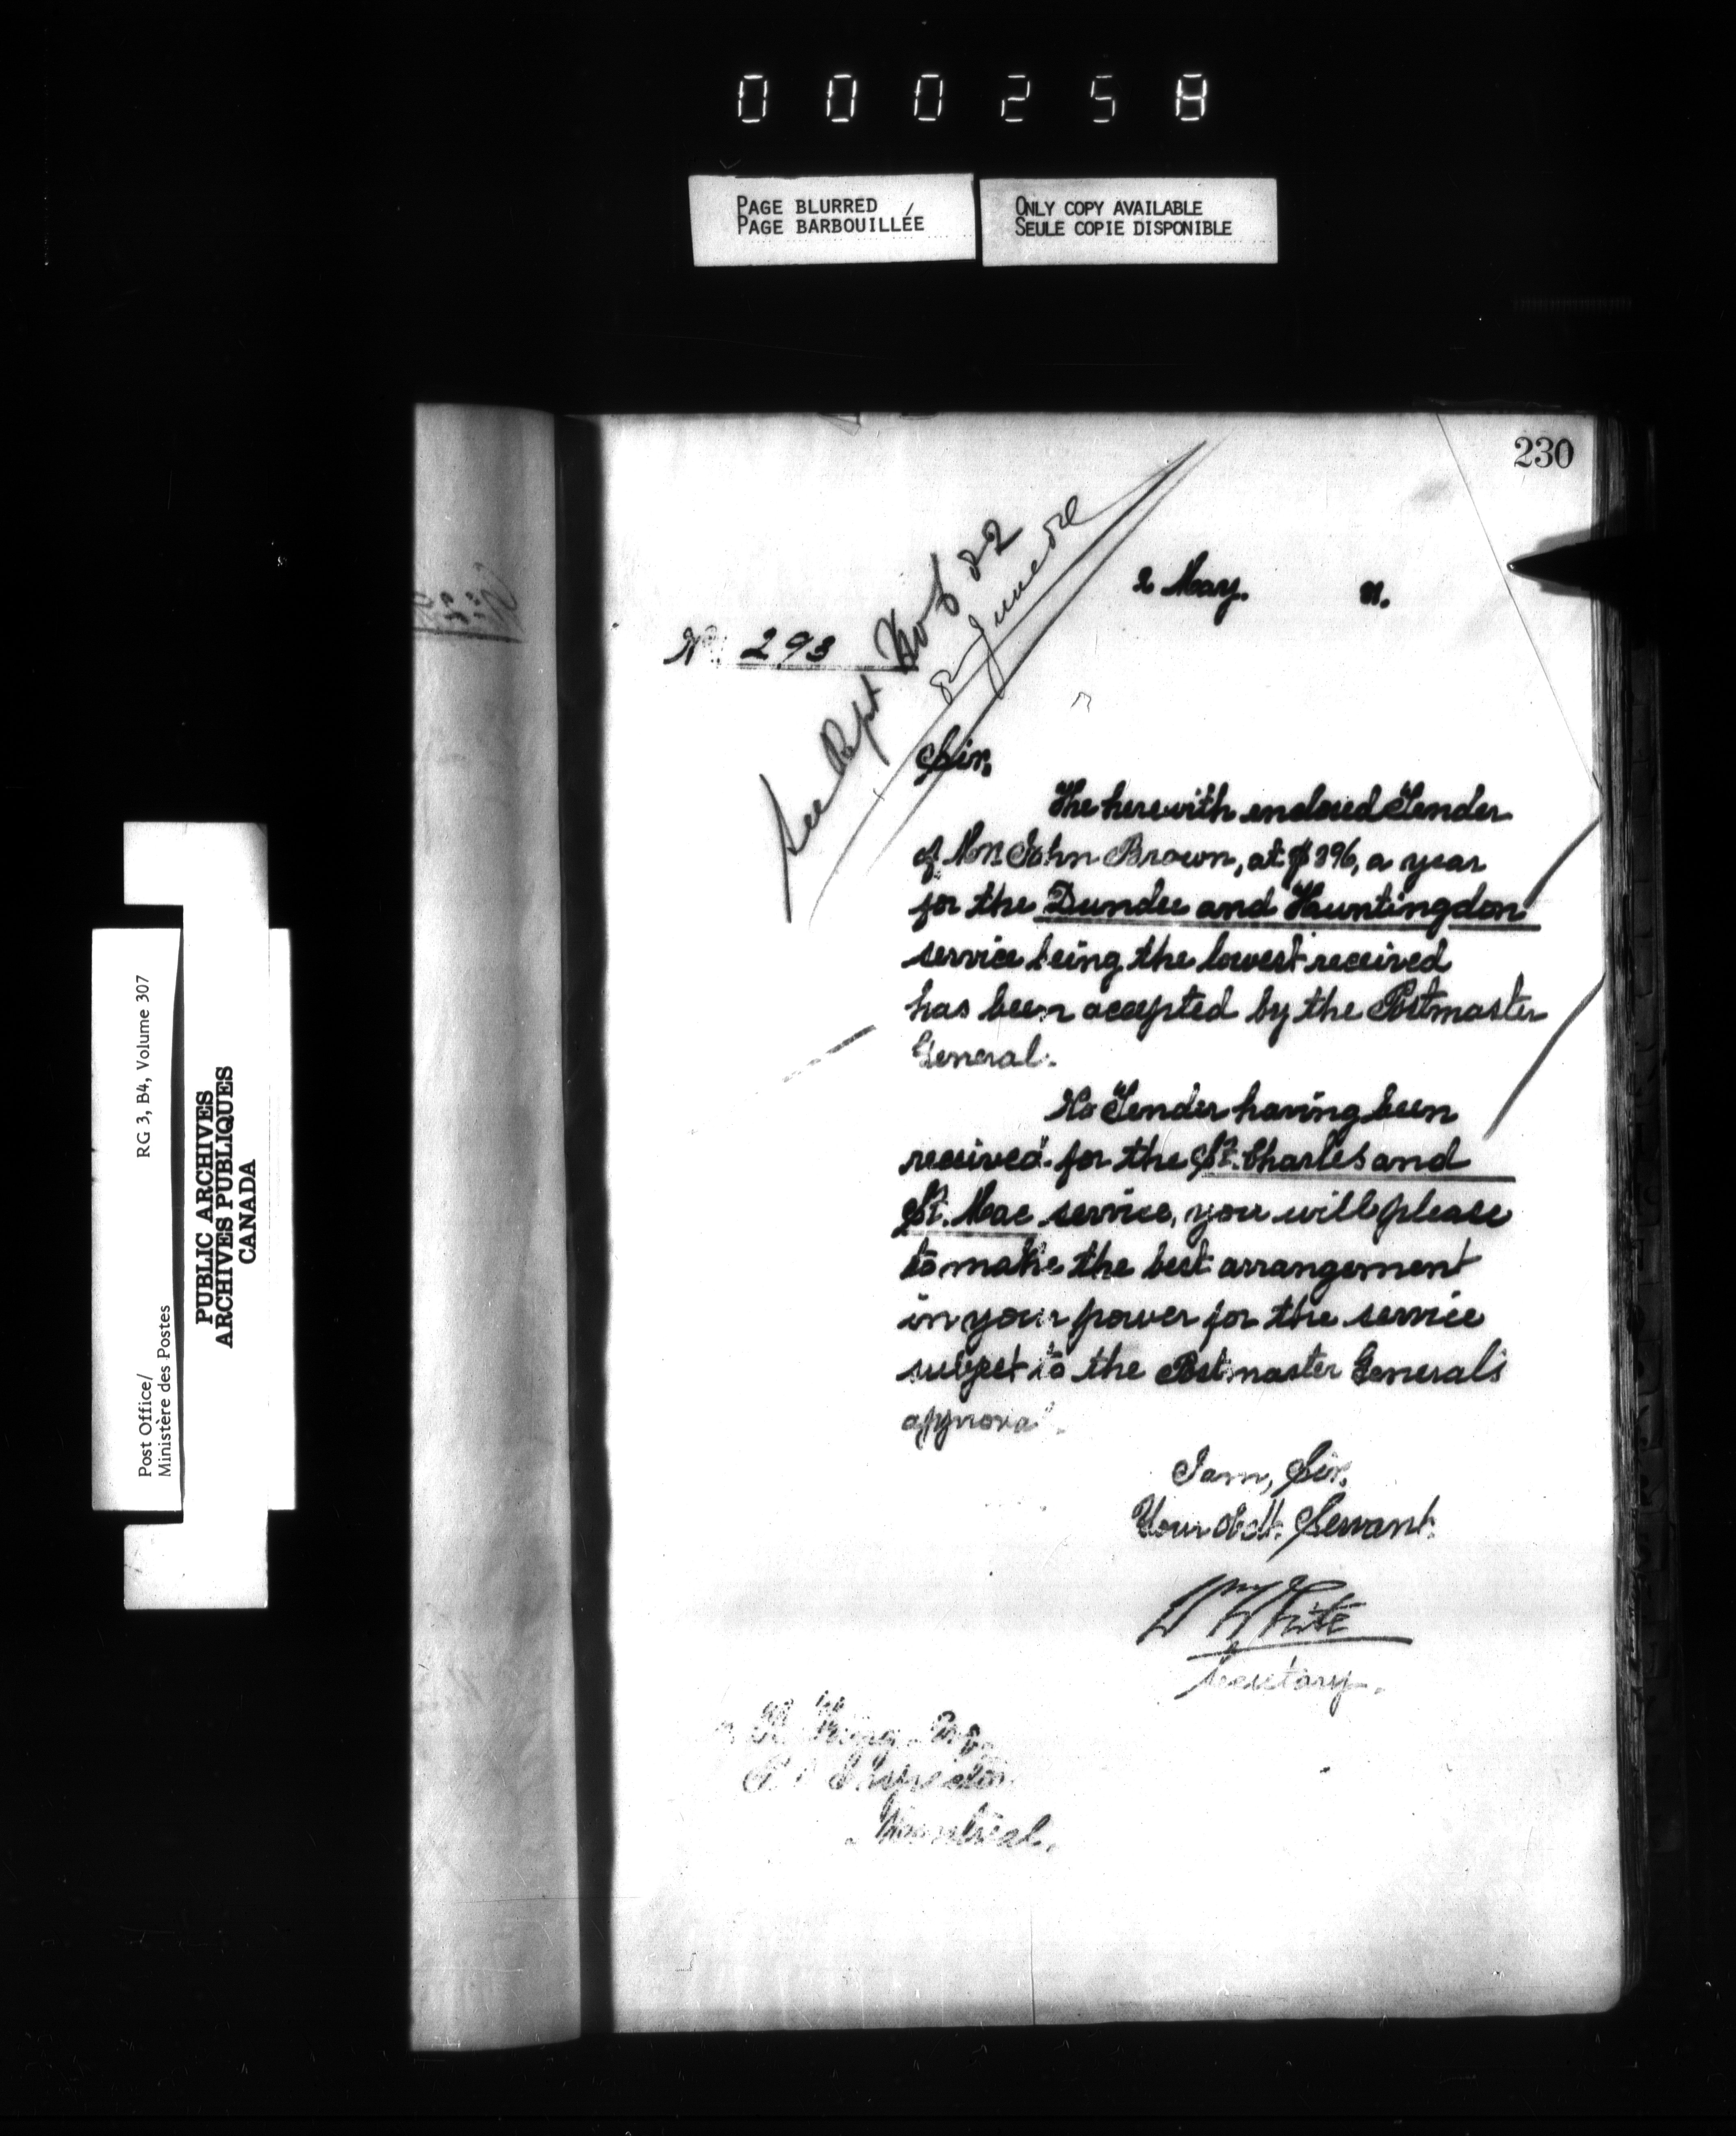 000258
PAGE BLURRED
PAGE BARBOUILLÉE
ONLY COPY AVAILABLE
SEULE COPIE DISPONIBLE
230
2 May. 81.
No. 293
See Rept No 6 82
Sir,
The herewith enclosed Tender
of Mr. John Brown, at $396, a year
for the Dundee and Huntingdon
service being the lowest received
has been accepted by the Postmaster
General.
No Tender having been
received for the St. Charles and
St. Marc service, you will please
to make the best arrangement
in your power for the service
subject to the Postmaster General's
approval.
I am, Sir,
Your obdt. Servant.
Wm White
Secretary.
King Esq.
P.O. Inspector
Montreal.
Post Office/
Ministère des Postes
RG 3, B4, Volume 307
PUBLIC ARCHIVES
ARCHIVES PUBLIQUES
CANADA